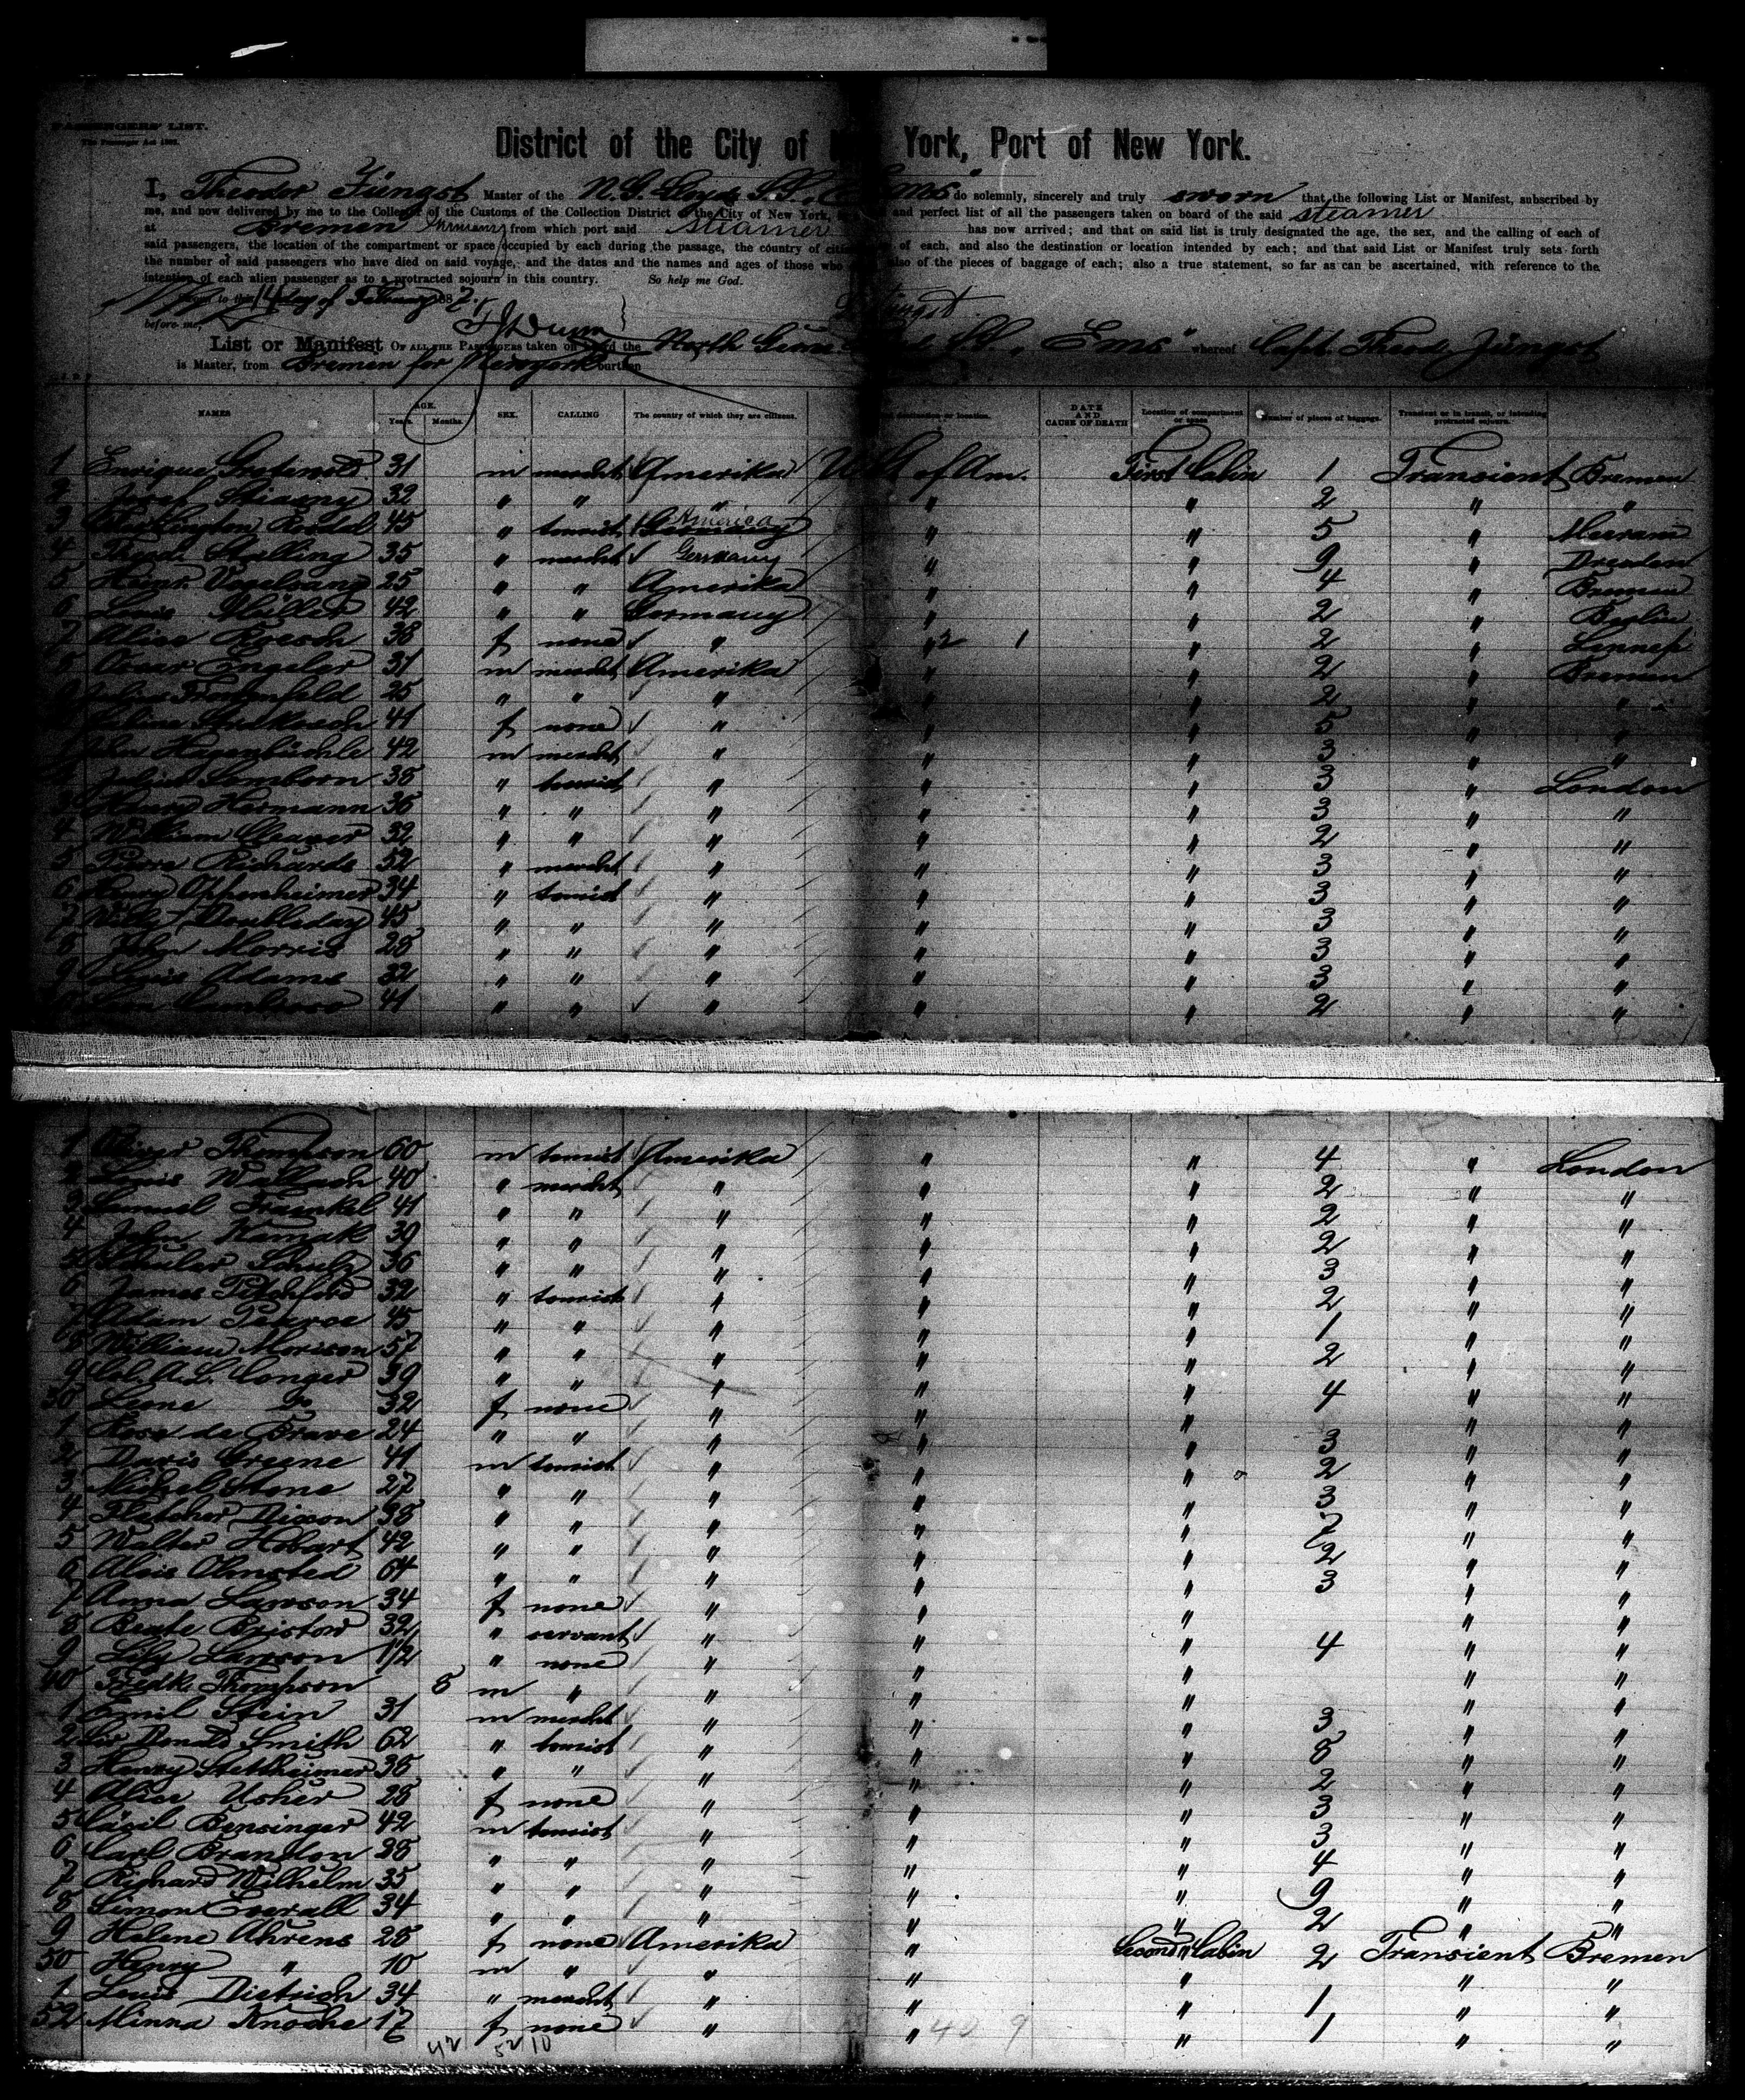 PASSENGERS' LIST.
The Passenger Act 1882.
District of the City of New York, Port of New York.
I, Theodor Jüngst Master of the N. G. Lloyds S.S. "Ems" do solemnly, sincerely and truly sworn that the following List or Manifest, subscribed by
me, and now delivered by me to the Collector of the Customs of the Collection District of the City of New York, is and perfect list of all the passengers taken on board of the said steamer
at Bremen Germany from which port said steamer has now arrived; and that on said list is truly designated the age, the sex, and the calling of each of
said passengers, the location of the compartment or space occupied by each during the passage, the country of of each, and also the destination or location intended by each; and that said List or Manifest truly sets forth
the number of said passengers who have died on said voyage, and the dates and the names and ages of those who also of the pieces of baggage of each; also a true statement, so far as can be ascertained, with reference to the
intention of each alien passenger as to a protracted sojourn in this country. So help me God.
to this 14 day of February 188
before me, Jüngst
List or Manifest OF ALL THE PASSENGERS taken on board the North Lloyd S.S. "Ems" whereof Capt. Theod. Jüngst
is Master, from Bremen for Newyork burthen
NAMES AGE. Years. Months. SEX. CALLING The country of which they are citizens. destination or location. DATE AND CAUSE OF DEATH Location of compartment or space Number of pieces of baggage. Transient or in transit, or intending protracted sojourn.
1 Enrique 31 m mercht Amerika U.S. of Am. First Cabin 1 Transient Bremen
2 Josef 32 " " " " " 2 " "
3 45 " tourist Germany America " " 5 " Meran
4 Theod. Stalling 35 " mercht Germany " " 9 " Dresden
5 Heinr. Vogelsang 25 " " Amerika " " 4 " Bremen
6 Louis Müller 42 " " Germany " " 2 " Berlin
7 Alice 38 f none " " 2 1 " 2 " Lennep
8 Oscar Engeler 31 m mercht Amerika " " 2 " Bremen
9 25 " " " " " 2 " "
41 f none " " " 5 " "
1 John 42 m mercht " " " 3 " "
2 Julius 38 " tourist " " " 3 " London
3 Henry Hermann 36 " " " " " 3 " "
4 William Cleaver 32 " " " " " 2 " "
5 Richards 52 " mercht " " " 3 " "
6 Henry Oppenheimer 34 " tourist " " " 3 " "
7 Doubleday 45 " " " " " 3 " "
8 John Morris 28 " " " " " 3 " "
9 Louis Adams 32 " " " " " 3 " "
41 " " " " " 2 " "
1 Oliver Thompson 60 m tourist Amerika " " 4 " London
2 Louis Wallach 40 " mercht " " " 2 " "
3 Samuel Fraenkel 41 " " " " " 2 " "
4 John 39 " " " " " 2 " "
5 36 " " " " " 3 " "
6 James Pitchford 32 " tourist " " " 2 " "
7 Adam Pearce 45 " " " " " 1 " "
8 William Morison 57 " " " " " 2 " "
9 Col. A.L. Conger 39 " " " " " " "
30 Leone do 32 f none " " " 4 " "
1 Rose de Brave 24 " " " " " 3 " "
2 Davis Greene 41 m tourist " " " 2 " "
3 Michel Stone 27 " " " " " 3 " "
4 Fletcher Dixson 38 " " " " " 7 " "
5 Walter Hobart 42 " " " " " 2 " "
6 Alois Olmsted 64 " " " " " 3 " "
7 Anna Lawson 34 f none " " " " "
8 Beate Bristow 32 " servant " " " 4 " "
9 Lily Lawson 1 1/2 " none " " " " "
40 Fredk. Thompson 8 m " " " " " "
1 Emil Stein 31 m mercht " " " 3 " "
2 Sir Donald Smith 62 " tourist " " " 8 " "
3 Henry Stettheimer 38 " " " " " 2 " "
4 Alice Usher 28 f none " " " 3 " "
5 Cäcil Bensinger 42 m tourist " " " 3 " "
6 Carl Brandon 28 " " " " " 4 " "
7 Richard Wilhelm 35 " " " " " 9 " "
8 Simon Everall 34 " " " " " 2 " "
9 Helene Ahrens 28 f none Amerika " Second Cabin 2 Transient Bremen
50 Henry " 10 m " " " " " "
1 Louis Dietrich 34 " mercht " " " 1 " "
52 Minna Knoche 17 f none " " " 1 " "
42 52 10 40 9